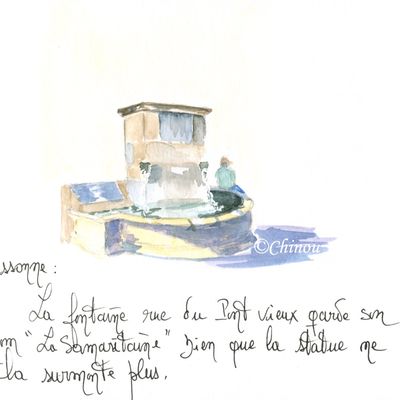 ©Chinou
ssonne :
La fontaine rue du Pont vieux garde son
om "La Samaritaine" bien que la statue ne
la surmonte plus.